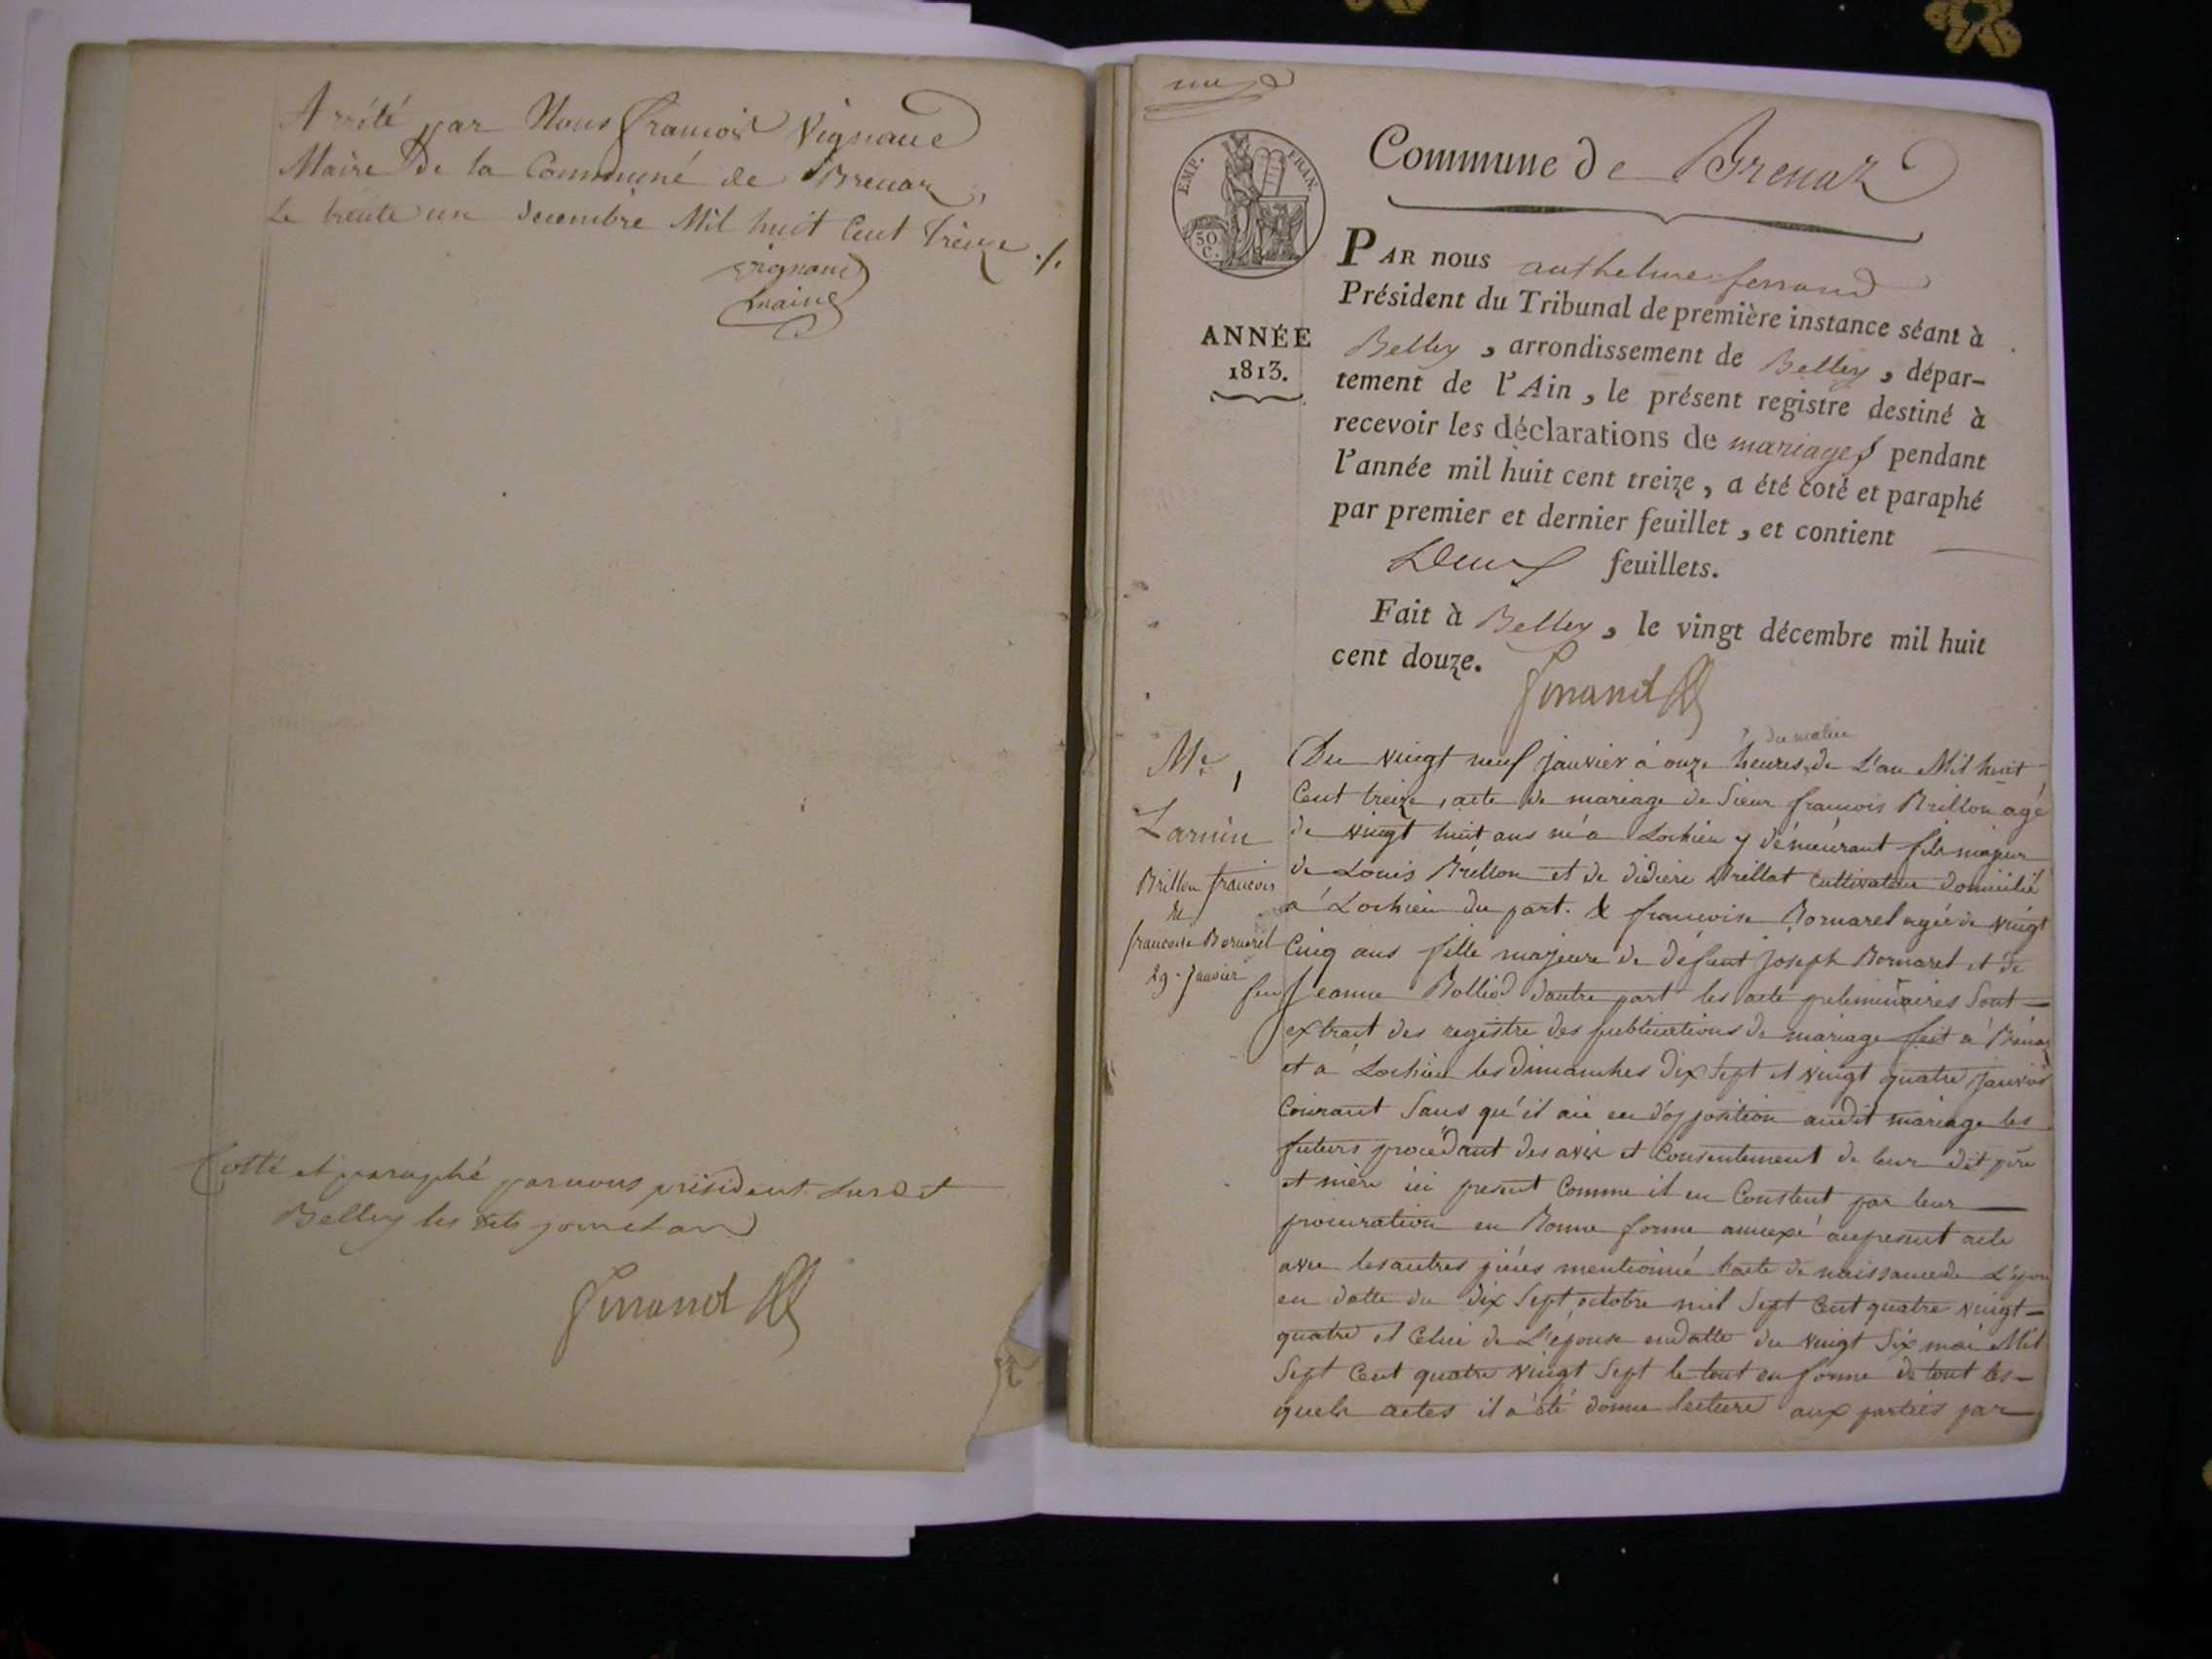 Arrêté par Nous françois Vignaud
Maire de la Commune de Brenaz
le trente un decembre Mil huit Cent Treize ./.
vignaud
maire
Cotté et paraphé par nous président susdit
Belley les dits jour et an
ferrand
une
Commune de Brenaz
EMP. FRAN.
50 C.
PAR nous anthelme ferrand
Président du Tribunal de première instance séant à
ANNÉE
1813.
Belley, arrondissement de Belley, dépar-
tement de l'Ain, le présent registre destiné à
recevoir les déclarations de mariages pendant
l'année mil huit cent treize, a été coté et paraphé
par premier et dernier feuillet, et contient
Deux feuillets.
Fait à Belley, le vingt décembre mil huit
cent douze.
ferrand
du matin
Du vingt neuf janvier à onze heures de L'an Mil huit
Cent treize, acte de mariage de Sieur françois Brillon agé
de vingt huit ans né a Lochieu y démeurant fils majeur
de Louis Brillon et de didiere Brillat Cultivateur domicilié
a Lochieu du part. & françoise Bornarel agée de vingt
Cinq ans fille majeure de défunt joseph Bornarel et de
feu jeanne Bolliod dautre part les acte preliminaires Sont
extrait des registre des publications de mariage fait a Brénaz
et a Lochieu les dimanches dix Sept et vingt quatre janvier
Courant Sans qu'il aie eu d'opposition audit mariage les
futurs procédant des avis et Consentement de leur dit père
et mère ici present Comme il en Constent par leur
procuration en Bonne forme annexé au present acte
avec les autres pièces mentionné l'acte de naissance de L'epoux
en datte du dix Sept octobre mil Sept Cent quatre vingt
quatre et Celui de L'épouse en datte du vingt Six mai Mil
Sept Cent quatre vingt Sept le tout en forme de tout les-
quels actes il a été donné lecture aux parties par
Me 1
Larnin
Brillon françois
&
françoise Bornarel
29. Janvier